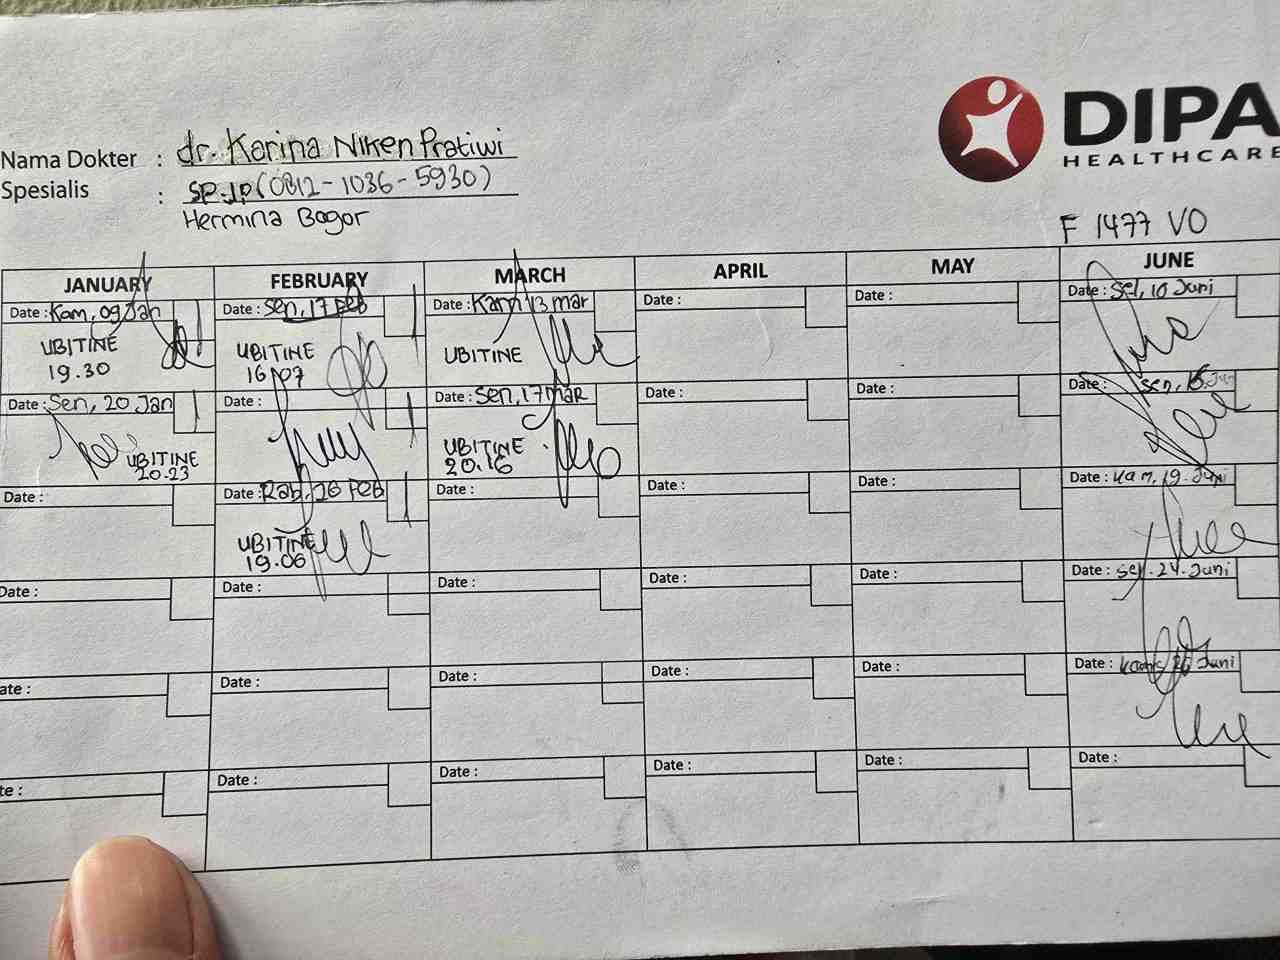 DIPA
HEALTHCARE
Nama Dokter : dr. Karina Niken Pratiwi
Spesialis : SP.JP (0812-1036-5930)
Hermina Bogor
F 1477 VO
JANUARY FEBRUARY MARCH APRIL MAY JUNE
Date : Kam, 09 Jan Date : Sen, 17 Feb Date : Kam 13 mar Date : Date : Date : Sel, 10 Juni
UBITINE UBITINE UBITINE
19.30 16.07
Date : Sen, 20 Jan Date : Date : Sen, 17 mar Date : Date : Date : Sen, 16 Jun
UBITINE UBITINE
20.23 20.16
Date : Date : Rab, 26 Feb Date : Date : Date : Date : Kam, 19. Juni
UBITINE
19.06
Date : Date : Date : Date : Date : Date : Sel. 24. Juni
ate : Date : Date : Date : Date : Date : Kamis 26 Juni
te : Date : Date : Date : Date : Date :